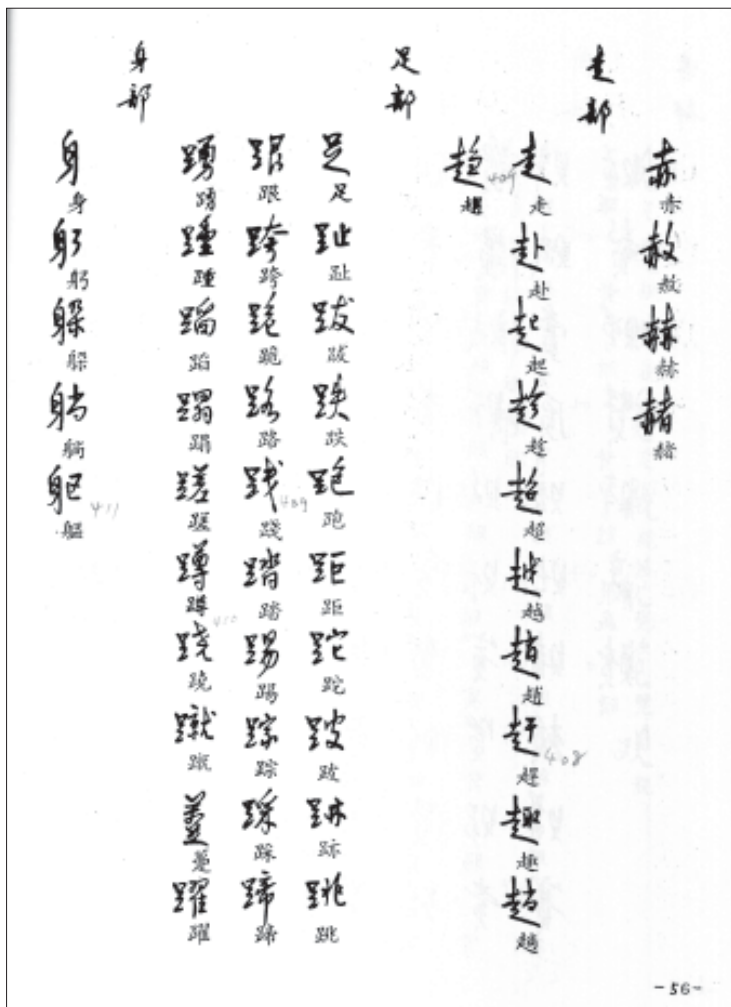 赤赤 赦赦 赫赫 赭赭
走部
走走 赴赴 起起 趁趁 超超 越越 趙趙 赶趕 408 趣趣 趟趟
趋趨 409
足部
足足 趾趾 跋跋 跌跌 跑跑 距距 跎跎 跛跛 跡跡 跳跳
跟跟 跨跨 跪跪 路路 践踐 409 踏踏 踢踢 踪踪 踩踩 蹄蹄
踴踴 踵踵 蹈蹈 蹋蹋 蹉蹉 蹲蹲 410 跷蹺 蹴蹴 躉躉 躍躍
身部
身身 躬躬 躲躲 躺躺 躯軀 411
-56-